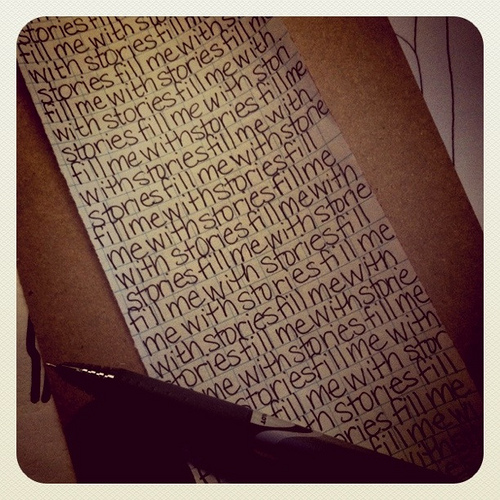 stories fill me with
fill me with stories
with stories fill me
stories fill me with
fill me with stories fill
with stories fill me with stori
stories fill me with
fill me with stories fill me
with stories fill me with
stories fill me with storie
fill me with stories fill
me with stories fill me
with stories fill me with
stories fill me with storie
fill me with stories fill
me with stories fill me
with stories fill me with
stories fill me with storie
fill me with stories fill me
stories fill me with
me with stories fill
with stories fill me
ories fill me with
fill me with